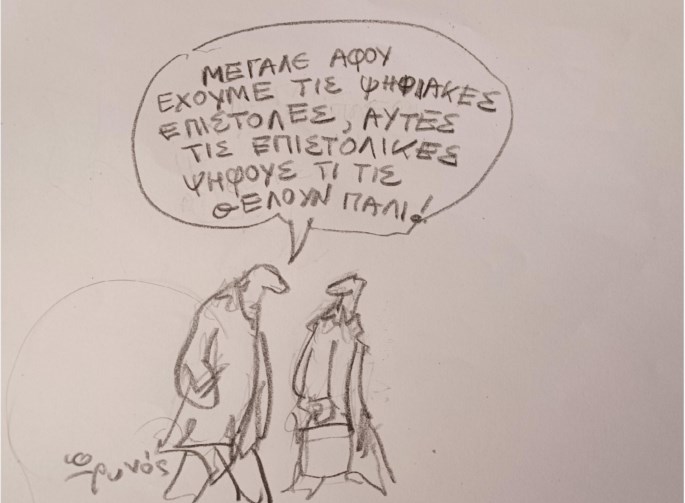 ΜΕΓΑΛΕ ΑΦΟΥ
ΕΧΟΥΜΕ ΤΙΣ ΨΗΦΙΑΚΕΣ
ΕΠΙΣΤΟΛΕΣ, ΑΥΤΕΣ
ΤΙΣ ΕΠΙΣΤΟΛΙΚΕΣ
ΨΗΦΟΥΣ ΤΙ ΤΙΣ
ΘΕΛΟΥΝ ΠΑΛΙ!